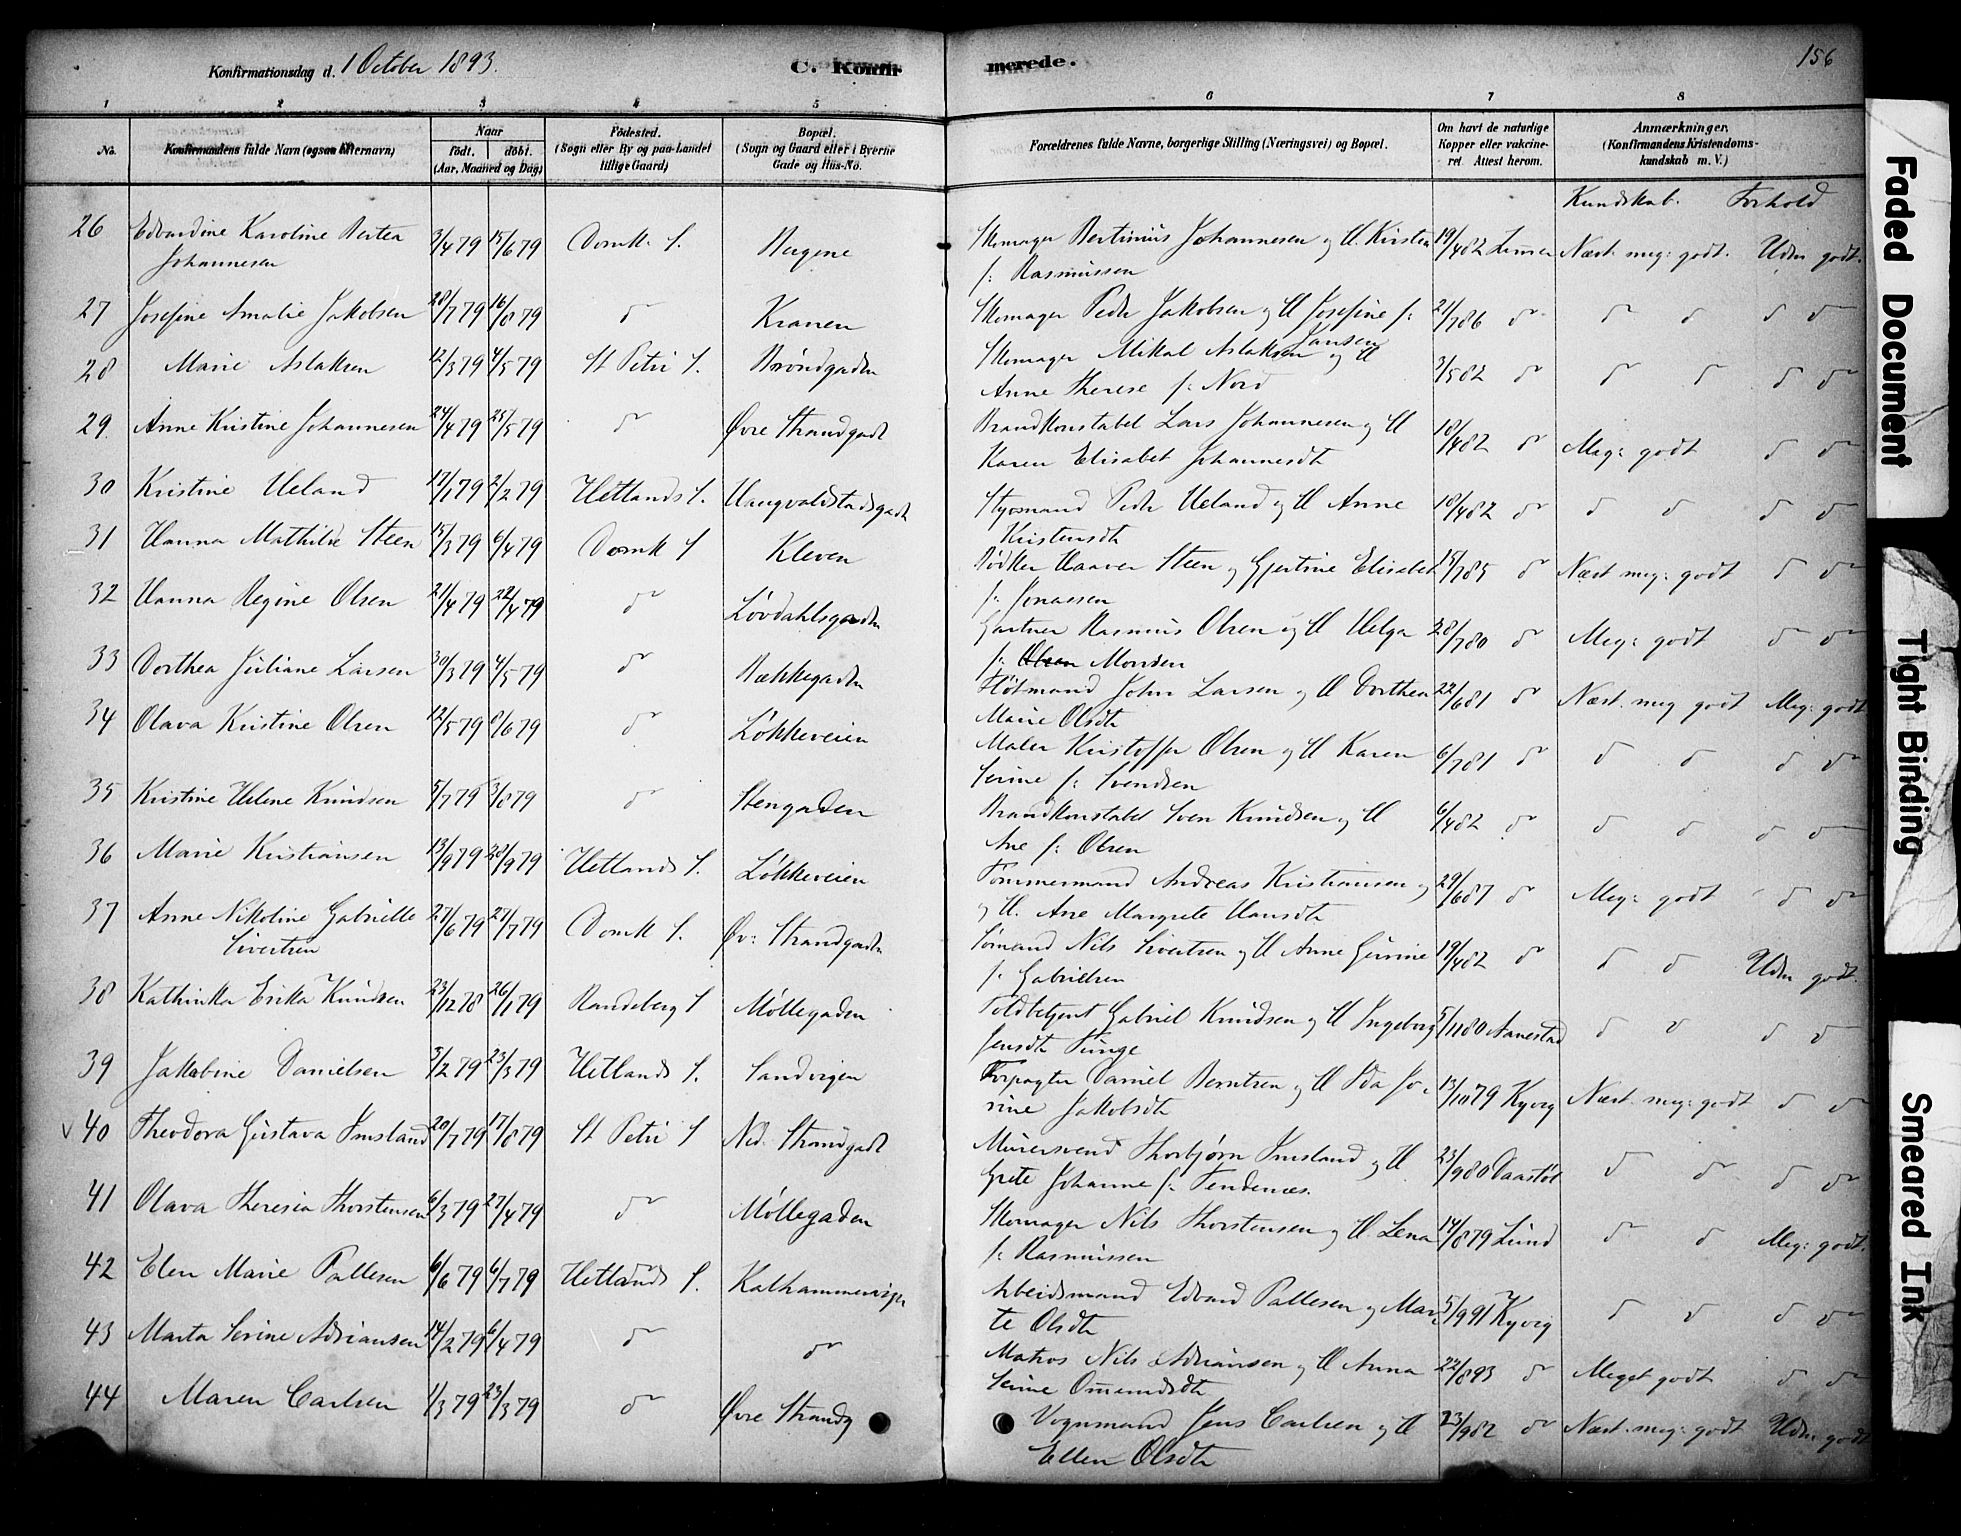 Konfirmationsdag d. 1 October 1893. C. Konfirmerede. 156
1 2 3 4 5 6 7 8
No. Konfirmandens fulde Navn (ogsaa Efternavn) Naar født. døbt. (Aar, Maaned og Dag) Fødested. (Sogn eller By og paa Landet tillige Gaard) Bopæl. (Sogn og Gaard eller i Byerne Gade og Hus-No. Forældrenes fulde Navne, borgerlige Stilling (Næringsvei) og Bopæl. Om havt de naturlige Kopper eller vaccineret. Attest herom. Anmærkninger. (Konfirmandens Kristendomskundskab m. V.)
Kundskab. Forhold
26 Edvardine Karoline Bertea Johannesen 3/4 79 15/6 79 Domk. S. Bergene Skomager Bertinius Johannesen og H. Kirstea f: Rasmussen 19/4 82 Næst. meg: godt. Udm godt.
27 Josefine Amalie Jakobsen 28/7 79 16/8 79 do Kranen Skomager Peder Jakobsen og H Josefine f: Jansen 21/7 86 do do do do do
28 Marie Aslaksen 12/3 79 4/5 79 St Petri S. Brøndgaden Skomager Mikal Aslaksen og H Anne Therese f: Nord 3/5 82 do do do do do
29. Anne Kristine Johannesen 24/4 79 25/5 79 do Øvre Strandgade Brandkonstabel Lars Johannesen og H Karen Elisabet Johannesdt 18/4 82 do Meg: godt do do
30 Kristine Ueland 17/1 79 2/2 79 Hetlands S. Haugvaldstadsgade Styrmand Peder Ueland og H Anne Kristensdt 18/4 82 do do do do do
31 Hanna Mathilde Steen 15/3 79 6/4 79 Domk S Kleven Bødker Haaver Steen og Gjertine Elisabet f: Jonassen 15/7 85 do Næst meg: godt do do
32 Hanna Regine Olsen 21/4 79 22/4 79 do Løvdahlsgaden Gartner Rasmus Olsen og H Helga f: Olsen Monsen 28/7 80 do Meg: godt do do
33 Dorthea Juliane Larsen 30/3 79 4/5 79 do Bækkegaden Fløtmand John Larsen og H Dorthea Marie Olsdt 22/6 81 do Næst. meg godt Meg: godt
34 Olava Kristine Olsen 12/5 79 8/6 79 do Løkkeveien Maler Kristoffer Olsen og H Karen Serine f: Svendsen 6/7 81 do do do do do
35 Kristine Helene Knudsen 5/7 79 3/8 79 do Stengaden Brandkonstabel Sven Knudsen og H Ane f: Olsen 6/4 82 do do do do do
36 Marie Kristiansen 13/9 79 28/9 79 Hetlands S. Løkkeveien Tømmermand Andreas Kristiansen og og H. Ane Margrete Hansdt 29/6 87 do Meg: godt do do
37 Anne Nikoline Gabrielle Sivertsen 27/6 79 27/7 79 Domk S. Øv: Strandgaden Sømand Nils Sivertsen og H Anne Gurine f: Gabrielsen 19/4 82 do do do Udm godt.
38 Kathinka Erika Knudsen 23/12 78 26/1 79 Randeberg S Møllegaden Toldbetjent Gabriel Knudsen og H Ingeborg Jensdt Tunge 5/11 80 Aanestad do do do do
39 Jakobine Danielsen 3/2 79 23/3 79 Hetlands S. Sandvigen Forpagter Daniel Berntsen og H Ida Jorine Jakobsdt 13/10 79 Kyvig Næst. meg: godt do do
40 Theodora Gustava Imsland 20/7 79 17/8 79 St Petri S Ned: Strandgade Murersvend Thorbjørn Imsland og H Grete Johanne f: Tendenæs. 23/9 80 do do do do
41 Olava Theresia Thorstensen 6/3 79 27/4 79 do Møllegaden Skomager Nils Thorstensen og H. Lena f: Rasmussen 14/8 79 Lund do do Meg: godt.
42 Elen Marie Pallesen 6/6 79 6/7 79 Hetlands S. Kalhammervigen Arbeidsmand Edvard Pallesen og Marte Olsdt 5/9 91 Kyvig do do do do
43 Marta Serine Adriansen 14/2 79 6/4 79 do do Matros Nils Adriansen og H Anna Serine 22/8 93 do Meget godt do do
44 Maren Carlsen 1/3 79 23/3 79 do Øvre Strandg Vognmand Jens Carlsen og H Ellen Olsdt 23/9 82 do Næst. meg: godt Udm godt
Faded Document
Tight Binding
Smeared Ink